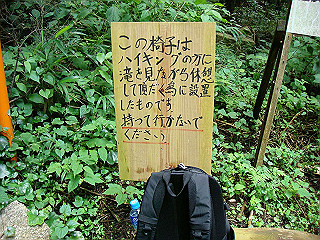 この椅子は
ハイキングの方に
滝を見ながら休憩
して頂だく為に設置
したものです
持って行かないで
ください。